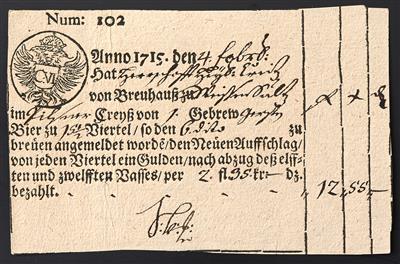 Num: 102
CVI
Anno 1715. den 4. febr:
Hat Herr
von Breuhauß zu
im Pilsner Creyß von 1. Gebrew Gersten
Bier zu 15½ Viertel / so den 6 dito zu
breuen angemeldet wordē / den Neuen Auffschlag /
von jeden Viertel ein Gulden / nach abzug deß elff-
ten und zwelfften Vasses / per 2. fl 35 kr dz.
bezahlt. 12 55